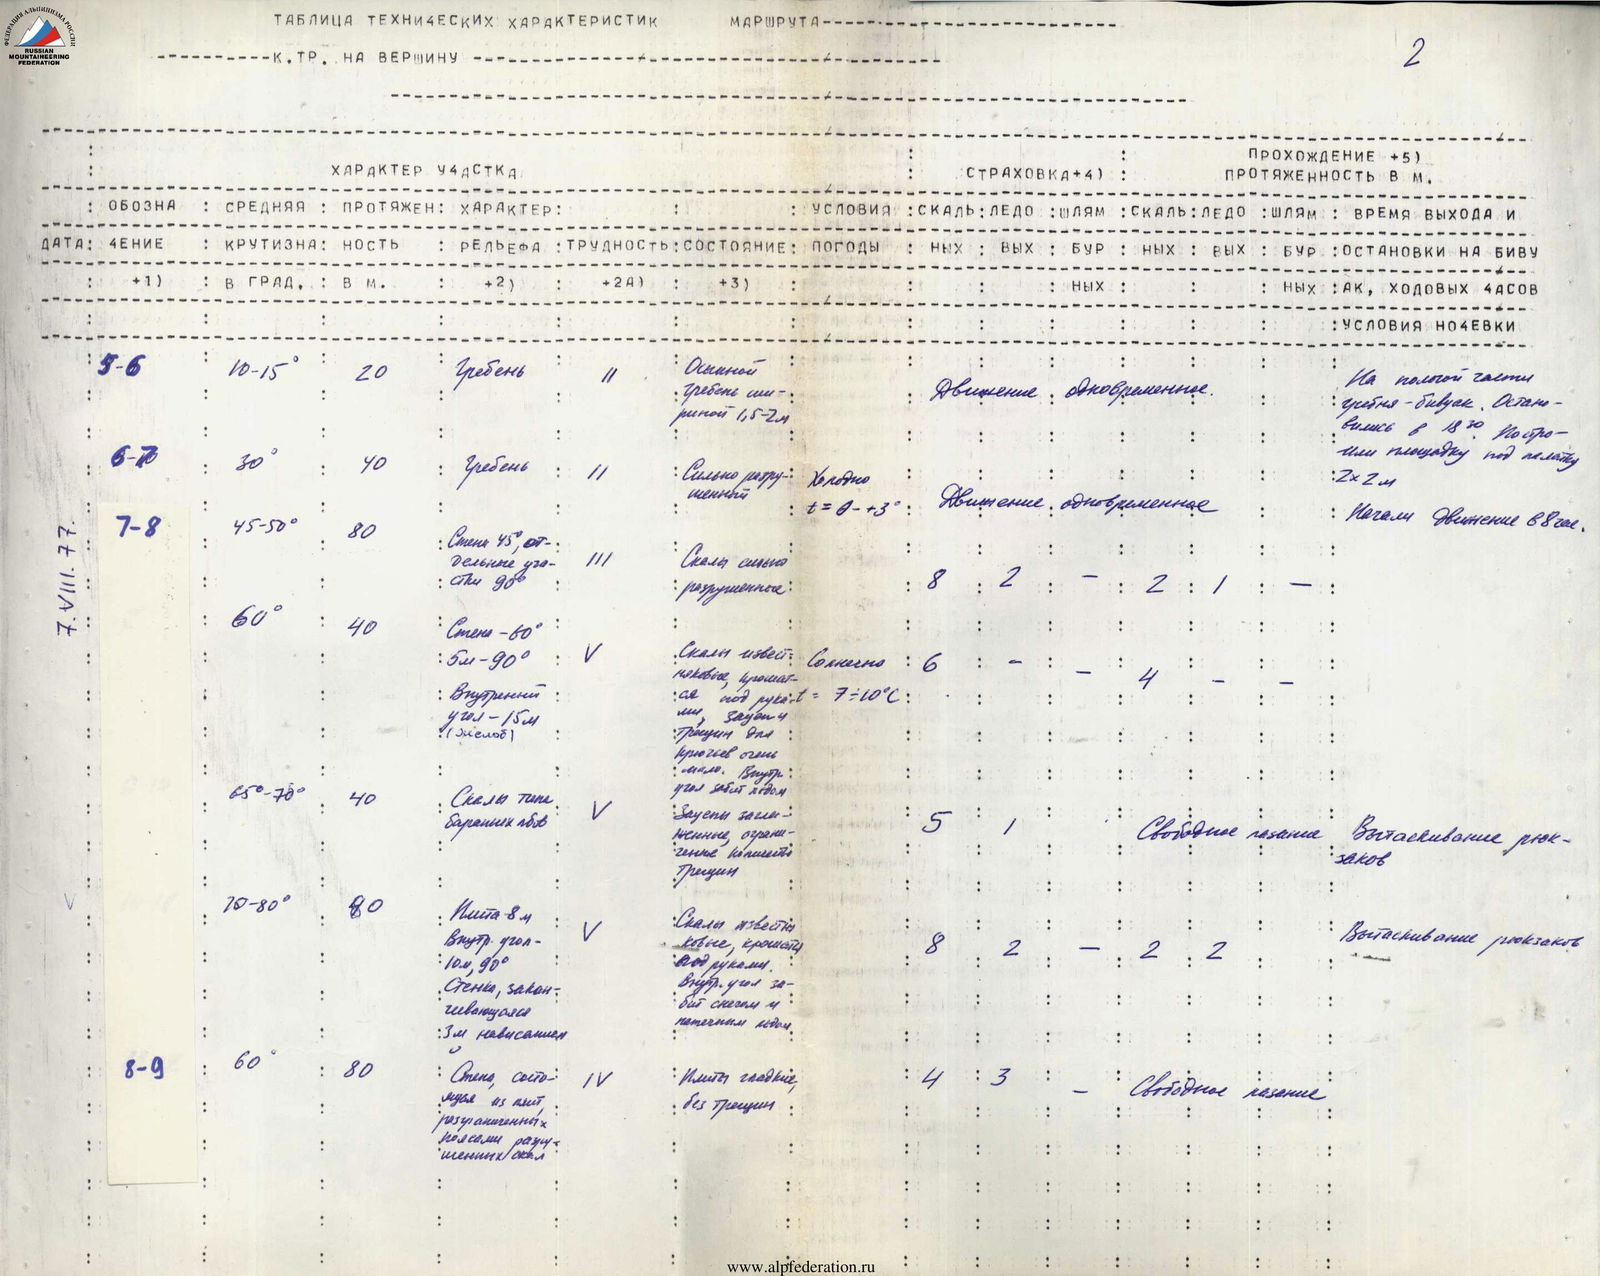 ФЕДЕРАЦИЯ АЛЬПИНИЗМА РОССИИ
RUSSIAN
MOUNTAINEERING
FEDERATION
ТАБЛИЦА ТЕХНИ4ЕСКИХ ХАРАКТЕРИСТИК МАРШРУТА
К.ТР. НА ВЕРШИНУ
2
ХАРАКТЕР У4АСТКА СТРАХОВКА+4) ПРОХОЖДЕНИЕ +5)
ПРОТЯЖЕННОСТЬ В М.
ОБОЗНА : СРЕДНЯЯ : ПРОТЯЖЕН: ХАРАКТЕР: УСЛОВИЯ :СКАЛЬ:ЛЕДО :ШЛЯМ :СКАЛЬ:ЛЕДО :ШЛЯМ : ВРЕМЯ ВЫХОДА И
ДАТА: 4ЕНИЕ : КРУТИЗНА: НОСТЬ : РЕЛЬЕФА :ТРУДНОСТЬ:СОСТОЯНИЕ: ПОГОДЫ : НЫХ : ВЫХ : БУР : НЫХ : ВЫХ : БУР :ОСТАНОВКИ НА БИВУ
+1) : В ГРАД. : В М. : +2) : +2А) : +3) НЫХ НЫХ :АК, ХОДОВЫХ 4АСОВ
:УСЛОВИЯ НО4ЕВКИ
5-6 10-15° 20 Гребень II Осыпной
гребень ши-
риной 1,5-2м
Движение одновременное.
На пологой части
гребня - бивуак. Остано-
вились в 18 30. Постро-
или площадку под палатку
2×2 м
6-7 30° 40 Гребень II Сильно разру-
шенный
Холодно
t = 0 - +3°
Движение одновременное
Начали движение в 8 час.
7.VIII.77
7-8 45-50° 80 Стена 45°, от-
дельные уча-
стки 90°
III Скалы сильно
разрушенные
8 2 - 2 1 -
60° 40 Стена - 60°
5м - 90°
Внутренний
угол - 15м
V Скалы извест-
няковые, крошат-
ся под рука-
ми, зацепы
трещин для
крючьев очень
мало. Внутр.
угол забит льдом
Солнечно
t = 7÷10°C
6 - - 4 - -
65°-70° 40 Скалы типа
бараньих лбов
V Зацепы загла-
женные, ограни-
ченное количество
трещин
5 1 Свободное лазание Вытаскивание рюк-
заков
70-80° 80 Плита-8м
Внутр. угол-
10м, 90°
Стенка, закан-
чивающаяся
3м нависанием
V Скалы известня
ковые, крошатся
под руками.
Внутр. угол за-
бит снегом и
натечным льдом.
8 2 - 2 2 Вытаскивание рюкзаков
8-9 60° 80 Стена, состо-
ящая из плит,
разграниченных
поясами разру-
шенных скал
IV Плиты гладкие,
без трещин
4 3 - Свободное лазание
www.alpfederation.ru